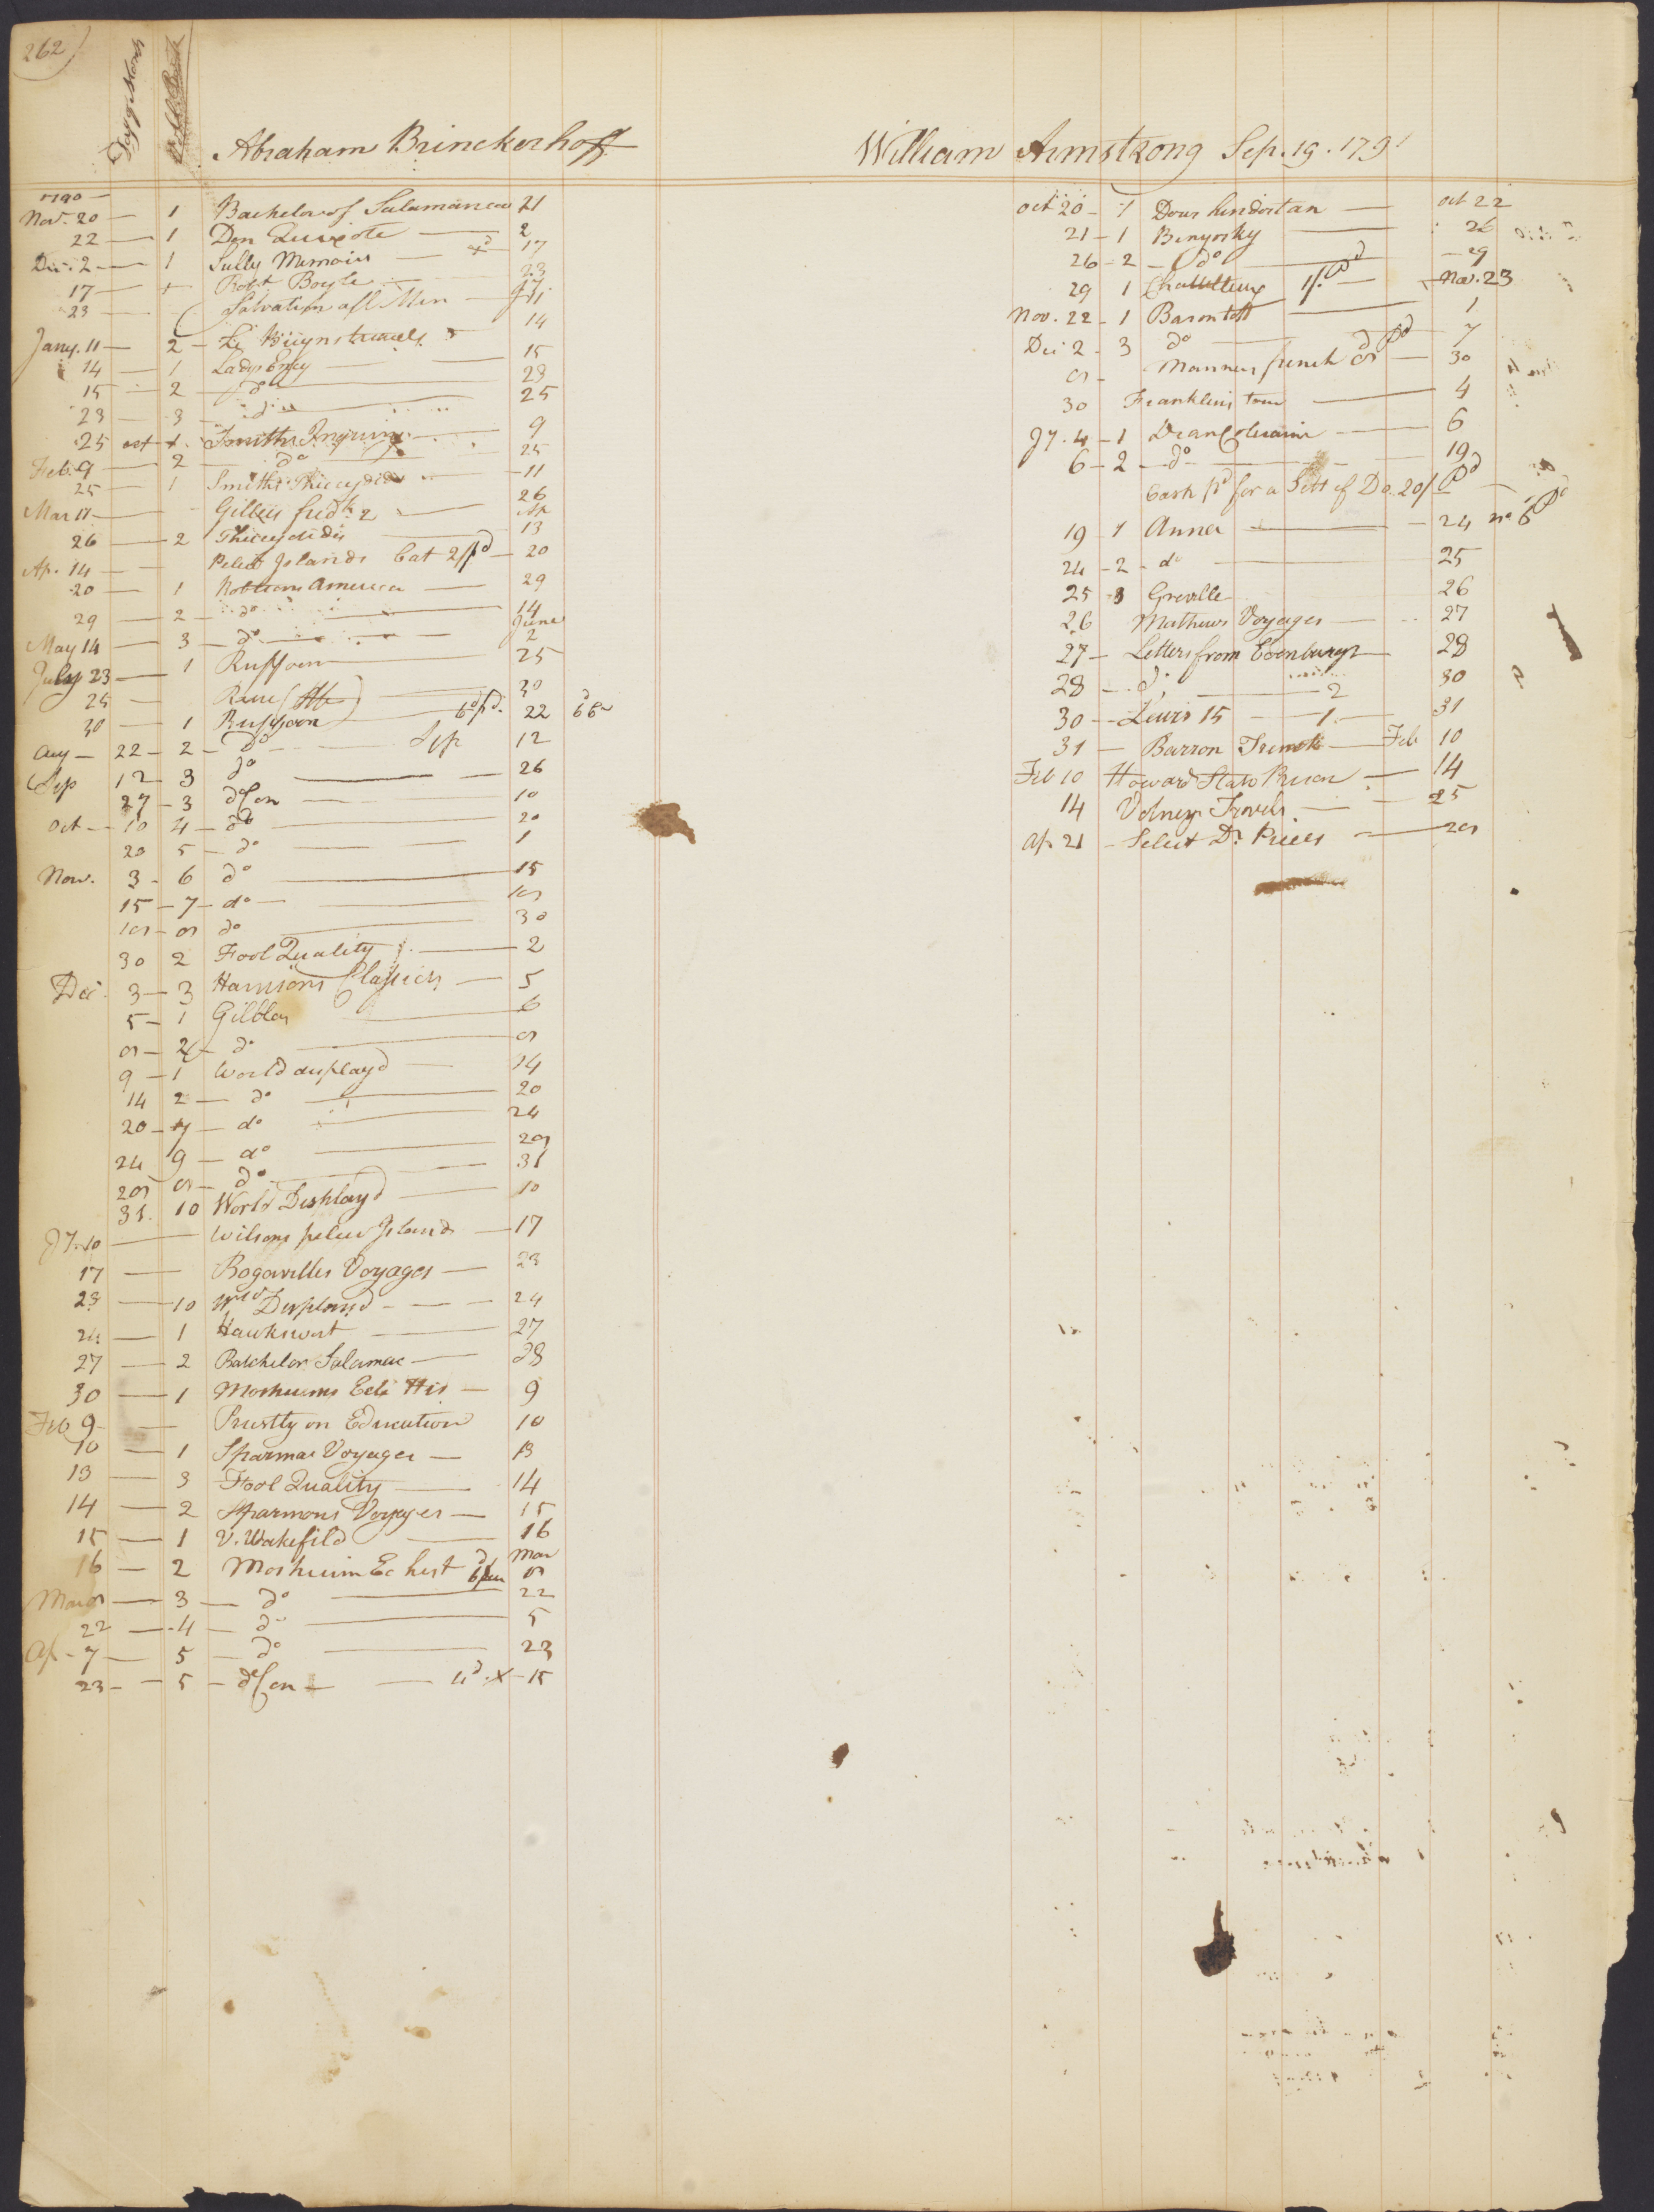 262
Abraham Brinckerhoff
1790
Nov. 20 — 1 Bachelor of Salamanca 21
22 — 1 Don Quixote — 2
Dec. 2 — 1 Sully Memoirs — 17
17 — 1 Robt Boyle — 23
23 — Salvation all Men —
Jany. 11 — 2 — 14
14 — 1 — 15
15 — 2 — do — 23
23 — 3 — do — 25
25 Smiths — 9
Feb. 9 — 2 — do — 25
25 — 1 Smiths Thucydides — 11
Mar 11 — Gillies fredk 2 — 26
26 — 2 Thucydides — 13
Ap. 14 — Pelew Islands Cat 2/pd — 20
20 — 1 Nothern America — 29
29 — 2 — do — 14
May 14 — 3 — do — June 2
July 23 — 1 Buffoon — 25
25 — 30
30 — 1 Buffoon — 6d pd. 22
Aug — 22 — 2 — Do — Sep 12
Sep 12 — 3 do — 26
27 — 3 do Con — 10
Oct — 10 4 — do — 20
20 5 — do — 1
Nov. 3 - 6 do — 15
15 — 7 — do — 18
18 — 8 do — 30
30 2 Fool Quality — 2
Dec. 3 — 3 Harrisons Classicks — 5
5 — 1 Gilblas — 6
8 — 2 — do — 8
9 — 1 World displayd — 14
14 2 — do — 20
20 — 7 — do — 24
24 9 — do — 28
28 8 — do — 31
31. 10 World Displayd — 10
Jy. 10 — Wilsons pelew Islands — 17
17 — Bogovilles Voyages — 23
23 — 10 Wld Displayd — 24
24 — 1 Hawkswort — 27
27 — 2 Batchelor Salamac — 28
30 — 1 Mosheims Ecle His — 9
Feb 9 — Prustly on Education 10
10 — 1 Sparman Voyages — 13
13 — 3 Fool Quality — 14
14 — 2 Sparmons Voyages — 15
15 — 1 V. Wakefild — 16
16 — 2 Mosheim Ec hist Mar 8
Mar 8 — 3 — do — 22
22 — 4 — do — 5
Ap - 7 — 5 — do — 23
23 — 5 — do Con — 4d. X — 15
William Armstrong Sep. 19. 1791
Oct 20 - 1 Dows hindostan — Oct 22
21 - 1 Benyosky — 26
26 - 2 — do — 29
29 1 Chattelleux 1/. Pd — Nov. 23
Nov. 22 - 1 Baron tott — 1
Dec 2 - 3 do — 7
8 - Manners french — 30
30 Franklins — 4
Jy. 4 - 1 Dean Colraine — 6
6 - 2 — do — 19
Cash pd for a Sett of Do. 20/ Pd
19 - 1 Anna — 24
24 - 2 - do — 25
25 - 3 Greville 26
26 Mathews Voyages — 27
27 - Letters from Edenburgh 28
28 — do — 2 30
30 — Lewis 15 — 1 — 31
31 — Barron Trenck — Feb 10
Feb 10 Howard State Prison — 14
14 Volney Travels — 25
Ap 21 - Select Dr. Pieces — 28